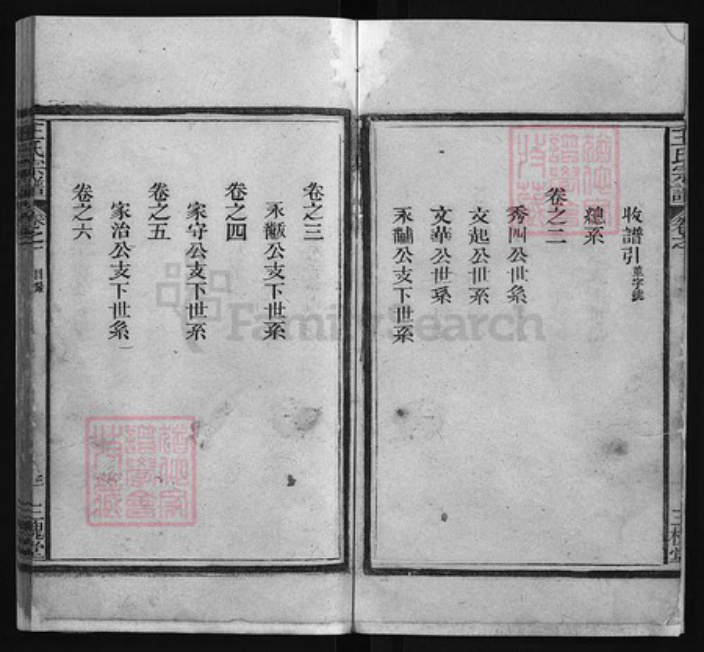 王氏宗譜 卷之一
收譜引 並字派
總系
卷之二
秀四公世系
文起公世系
文華公世系
永黼公支下世系
三槐堂
卷之三
永黻公支下世系
卷之四
家守公支下世系
卷之五
家治公支下世系
卷之六
王氏宗譜 卷之一 目錄
三槐堂
FamilySearch